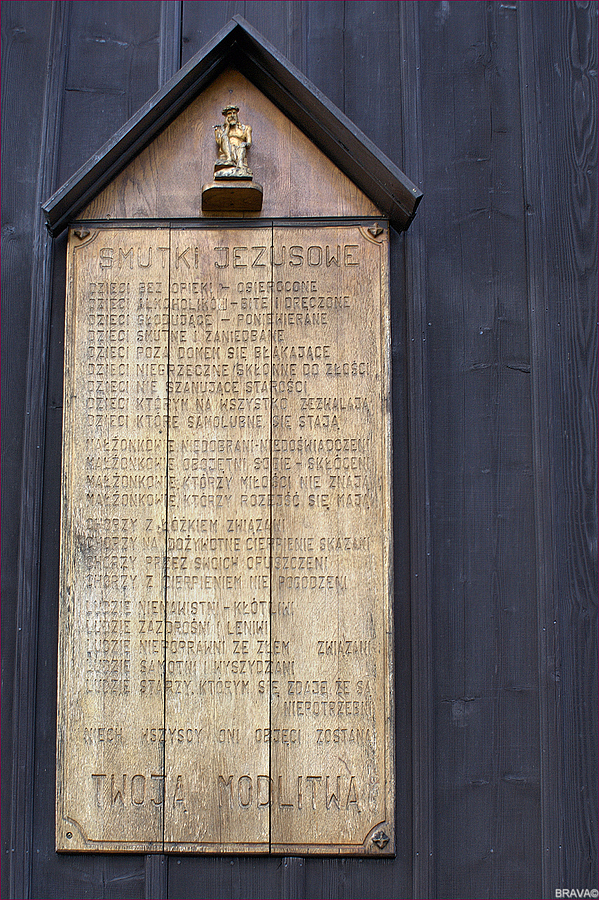 SMUTKI JEZUSOWE
DZIECI BEZ OPIEKI - OSIEROCONE
DZIECI ALKOHOLIKÓW - BITE I DRĘCZONE
DZIECI GŁODUJĄCE - PONIEWIERANE
DZIECI SMUTNE I ZANIEDBANE
DZIECI POZA DOMEM SIĘ BŁĄKAJĄCE
DZIECI NIEGRZECZNE SKŁONNE DO ZŁOŚCI
DZIECI NIE SZANUJĄCE STAROŚCI
DZIECI KTÓRYM NA WSZYSTKO ZEZWALAJĄ
DZIECI KTÓRE SAMOLUBNE SIĘ STAJĄ
MAŁŻONKOWIE NIEDOBRANI-NIEDOŚWIADCZENI
MAŁŻONKOWIE OBOJĘTNI SOBIE - SKŁÓCENI
MAŁŻONKOWIE KTÓRZY MIŁOŚCI NIE ZNAJĄ
MAŁŻONKOWIE KTÓRZY ROZEJŚĆ SIĘ MAJĄ
CHORZY Z ŁÓŻKIEM ZWIĄZANI
CHORZY NA DOŻYWOTNE CIERPIENIE SKAZANI
CHORZY PRZEZ SWOICH OPUSZCZENI
CHORZY Z CIERPIENIEM NIE POGODZENI
LUDZIE NIENAWISTNI - KŁÓTLIWI
LUDZIE ZAZDROŚNI I LENIWI
LUDZIE NIEPOPRAWNI ZE ZŁEM ZWIĄZANI
LUDZIE SAMOTNI I WYSZYDZANI
LUDZIE STARZY, KTÓRYM SIĘ ZDAJE ŻE SĄ
NIEPOTRZEBNI
NIECH WSZYSCY ONI OBJĘCI ZOSTANĄ
TWOJĄ MODLITWĄ
BRAVA©